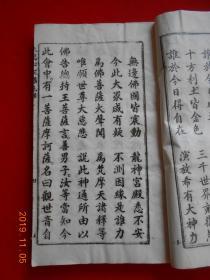 誰於今
十方剎土皆金色 三千世界
誰於今日得自在 演放希有大神力
無邊佛國皆震動 龍神宮殿悉不安
今此大眾咸有疑 不測因緣是誰力
為佛菩薩大聲聞 為梵摩天諸釋等
唯願世尊大慈悲 說此神通所由以
佛告總持王菩薩言善男子汝等當知今
此會中有一菩薩摩訶薩名曰觀世音自
2019.11.05